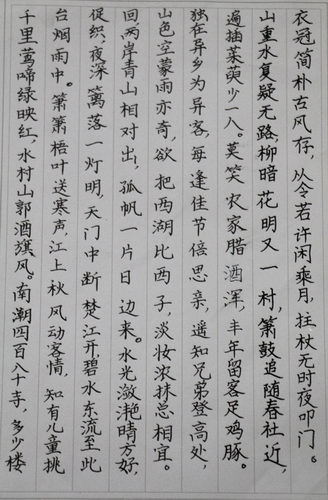 千里莺啼绿映红,水村山郭酒旗风。南潮四百八十寺,多少楼
台烟雨中。箫箫梧叶送寒声,江上秋风动客情,知有儿童挑
促织,夜深篱落一灯明,天门中断楚江开,碧水东流至此
回两岸青山相对出,孤帆一片日边来。水光潋滟晴方好,
山色空蒙雨亦奇,欲把西湖比西子,淡妆浓抹总相宜。
独在异乡为异客,每逢佳节倍思亲,遥知兄弟登高处,
遍插茱萸少一人。莫笑农家腊酒浑,丰年留客足鸡豚。
山重水复疑无路,柳暗花明又一村,箫鼓追随春社近,
衣冠简朴古风存,从今若许闲乘月,拄杖无时夜叩门。